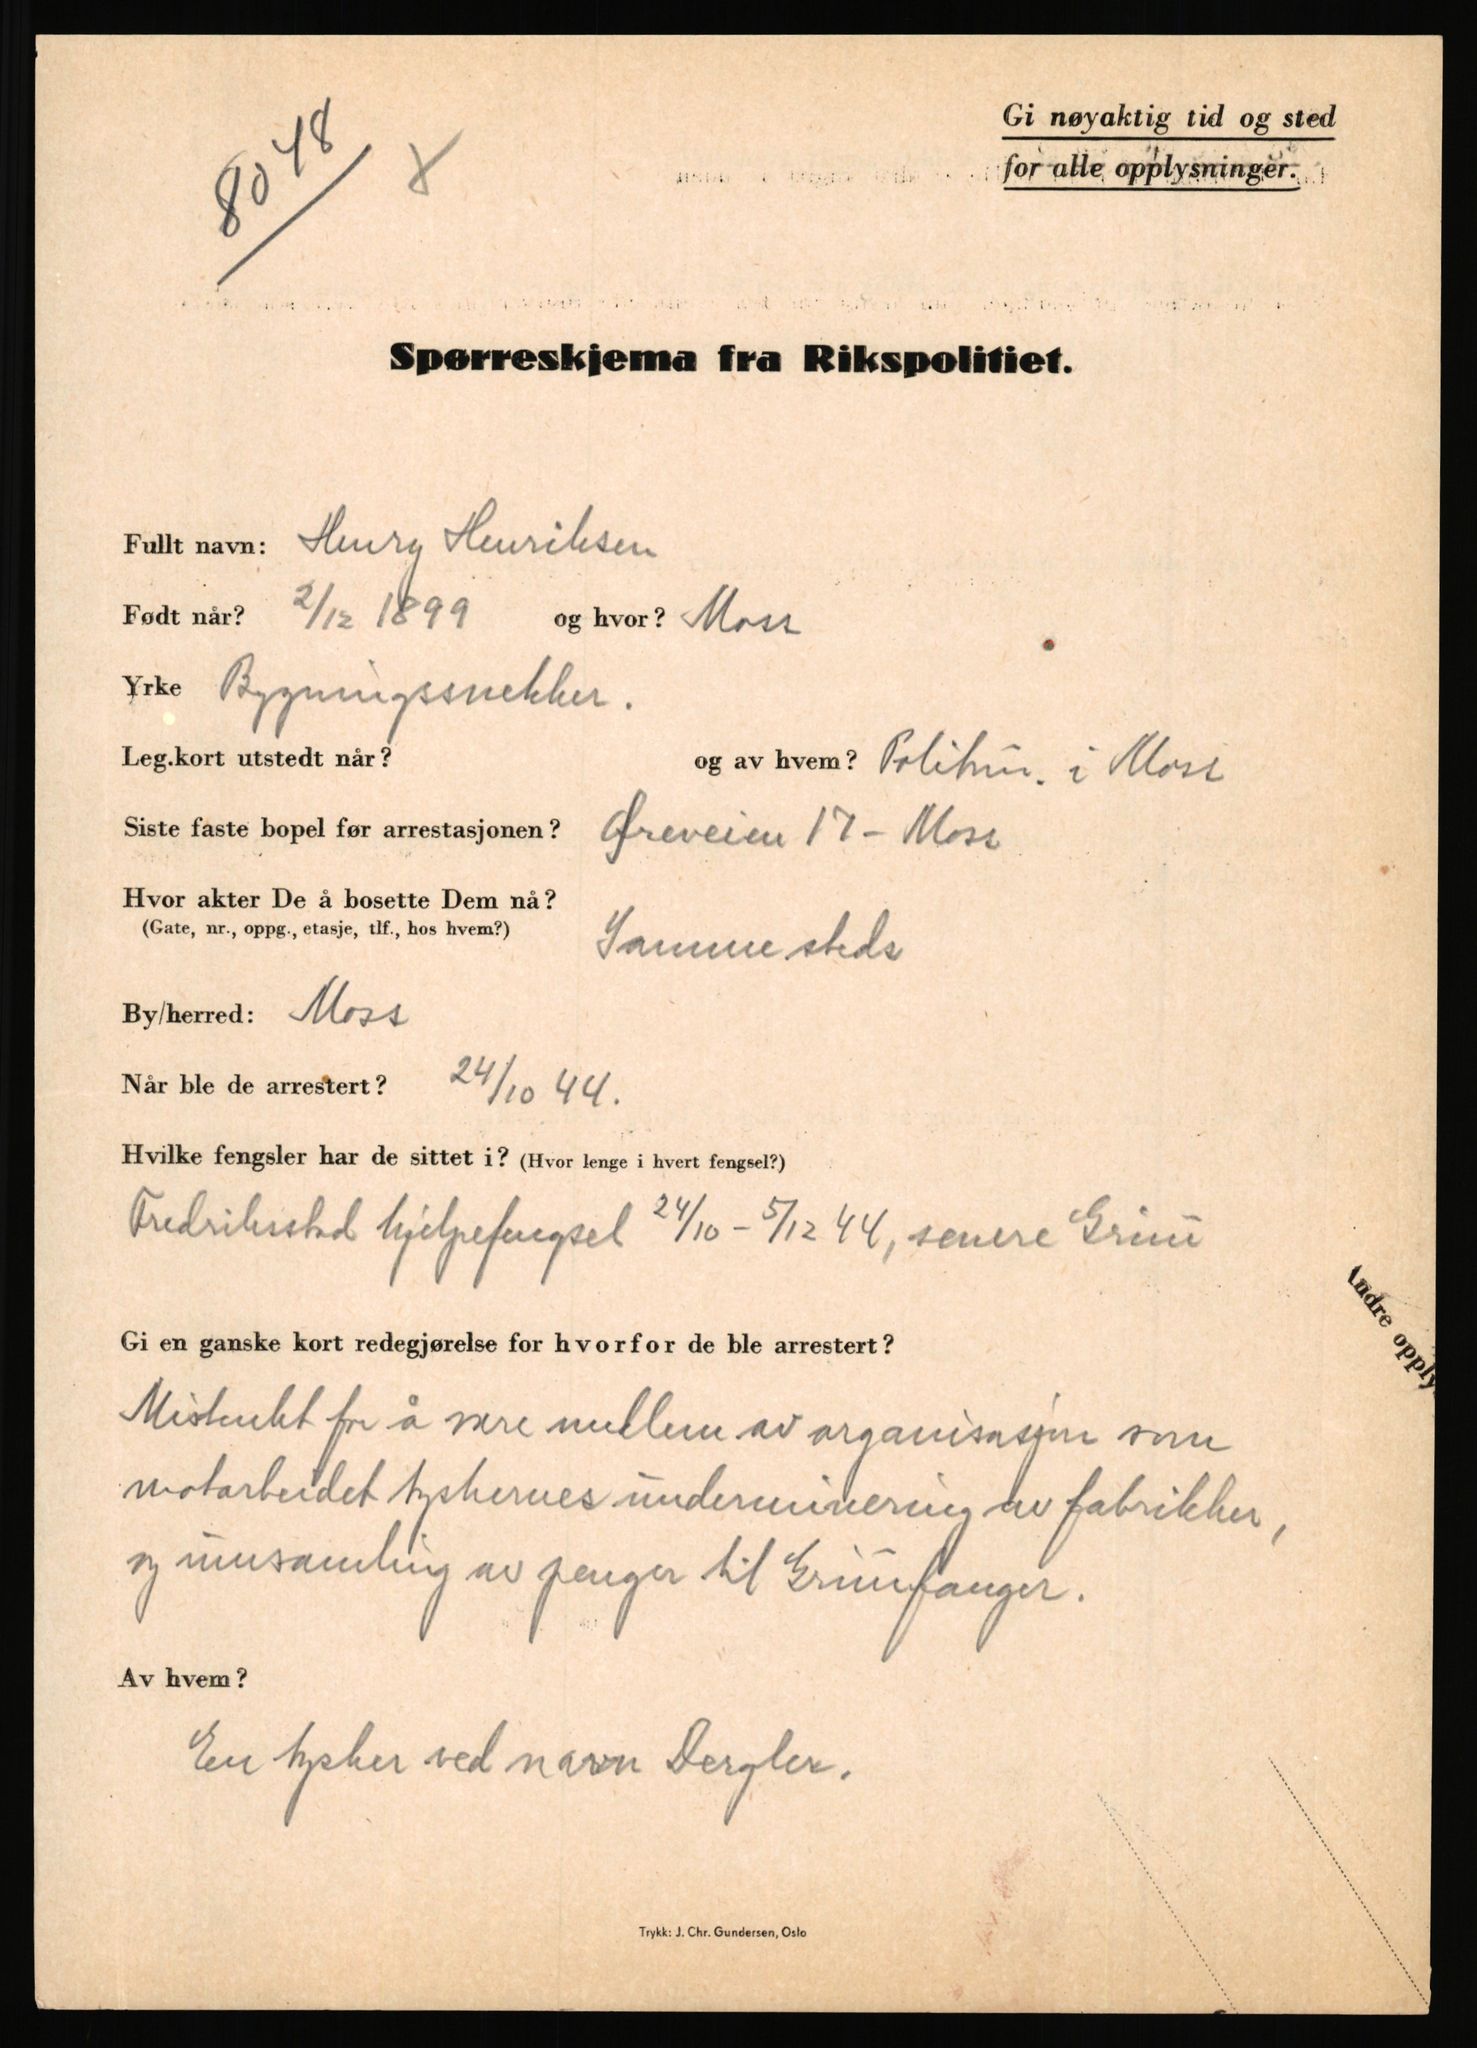 8048
Gi nøyaktig tid og sted
for alle opplysninger.
Spørreskjema fra Rikspolitiet.
Fullt navn: Henry Henriksen
Født når? 2/12 1899 og hvor? Moss
Yrke Bygningssnekker.
Leg.kort utstedt når? og av hvem? Politim. i Moss
Siste faste bopel før arrestasjonen? Øreveien 17 - Moss
Hvor akter De å bosette Dem nå?
(Gate, nr., oppg., etasje, tlf., hos hvem?) Samme steds
By/herred: Moss
Når ble de arrestert? 24/10 44.
Hvilke fengsler har de sittet i? (Hvor lenge i hvert fengsel?)
Fredriksstad hjelpefengsel 24/10 - 5/12 44, senere Grini
Andre opply
Gi en ganske kort redegjørelse for hvorfor de ble arrestert?
Mistenkt for å være medlem av organisasjon som
motarbeidet tyskernes underminering av fabrikker,
og innsamling av penger til Grinifanger.
Av hvem?
En tysker ved navn Dergler.
Trykk: J. Chr. Gundersen, Oslo